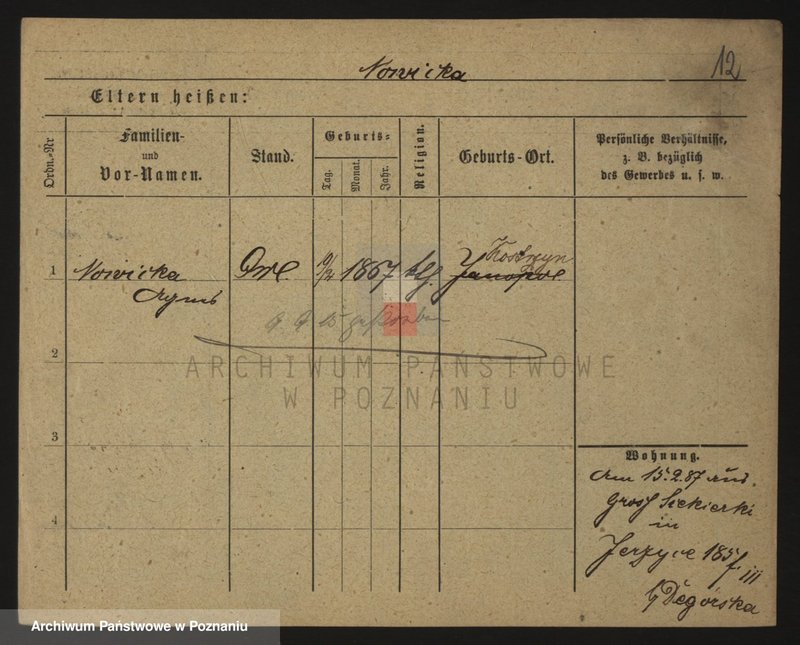 Nowicka
12
Eltern heißen:
Ordn.-Nr
Familien-
und
Vor-Namen.
Stand.
Geburts-
Tag.
Monat.
Jahr.
Religion.
Geburts-Ort.
Persönliche Verhältnisse,
z. B. bezüglich
des Gewerbes u. s. w.
1
Nowicka
1867
Kostrzyn
Janopol
2
3
4
Wohnung.
Am 15.2.87 aus
Groß Siekierki
in
Jerzyce 185
f III
b/ Degórska
ARCHIWUM PAŃSTWOWE
W POZNANIU
Archiwum Państwowe w Poznaniu